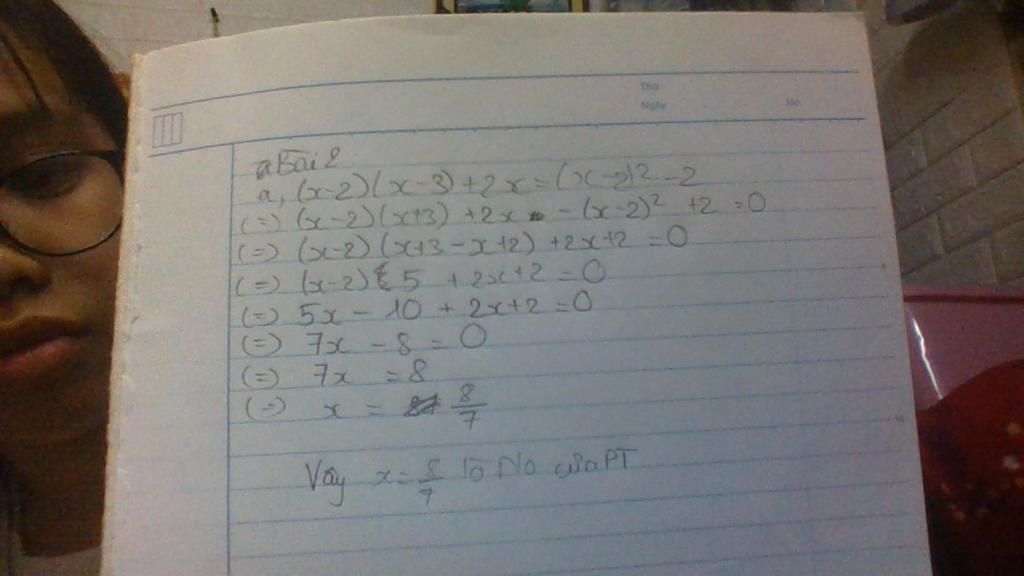 Thứ
Ngày
No
Bài 2
a, (x-2)(x-3)+2x=(x-2)²-2
(=) (x-2)(x+3) +2x -(x-2)² +2 =0
(=) (x-2)(x+3-x+2) +2x+2 =0
(=) (x-2) 5 +2x+2=0
(=) 5x-10+2x+2=0
(=) 7x-8=0
(=) 7x =8
(=) x = 8/7
Vây x=8/7 là No của PT